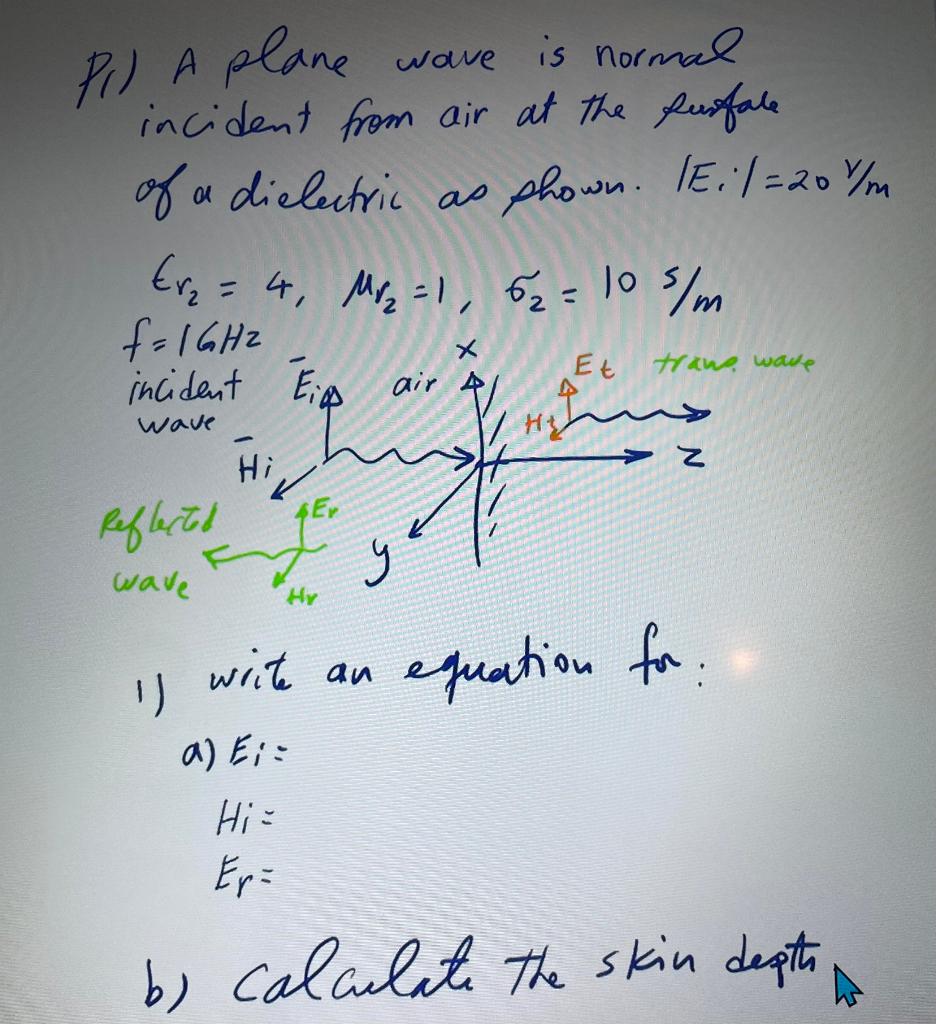 P1) A plane wave is normal
incident from air at the surface
of a dielectric as shown. |Ei| = 20 V/m
εr2 = 4, Mr2 = 1, σ2 = 10 s/m
f = 1 GHz
x
incident Ēi air Et trans. wave
wave
Ht
H̄i z
Reflected Er
wave y
Hr
1) write an equation for:
a) Ei =
Hi =
Er =
b) Calculate the skin depth